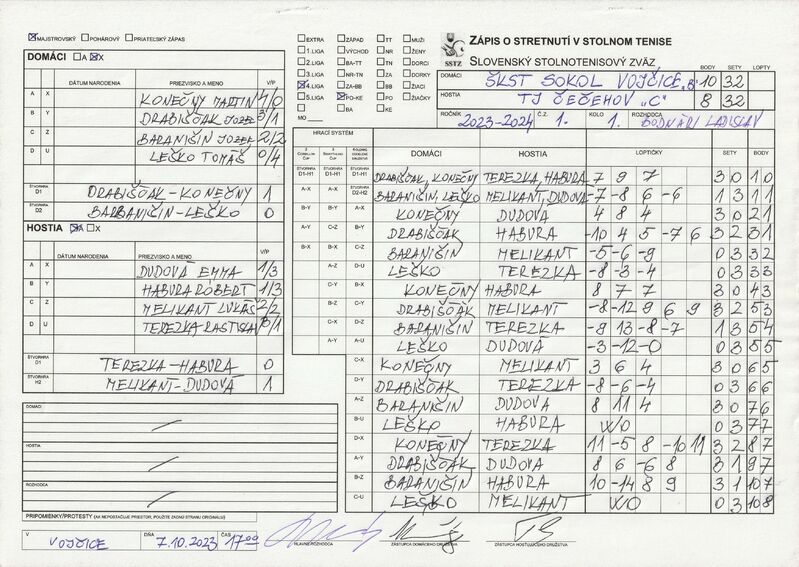 MAJSTROVSKÝ POHÁROVÝ PRIATEĽSKÝ ZÁPAS
DOMÁCI A X
DÁTUM NARODENIA PRIEZVISKO A MENO V/P
A X KONEČNÝ MARTIN 4/0
B Y DRABIŠČAK JOZEF 3/1
C Z BARANIŠIN JOZEF 2/2
D U LEŠKO TOMÁŠ 0/4
ŠTVORHRA D1 DRABIŠČAK-KONEČNÝ 1
ŠTVORHRA D2 BARBANIŠIN-LEŠKO 0
HOSTIA A X
DÁTUM NARODENIA PRIEZVISKO A MENO V/P
A X DUDOVÁ EMMA 1/3
B Y HABURA RÓBERT 1/3
C Z MELIKANT LUKÁŠ 2/2
D U TEREZKA RASTISLAV 3/1
ŠTVORHRA D1 TEREZKA-HABURA 0
ŠTVORHRA H2 MELIKANT-DUDOVÁ 1
DOMÁCI
HOSTIA
ROZHODCA
PRIPOMIENKY/PROTESTY (AK NEPOSTAČUJE PRIESTOR, POUŽITE ZADNÚ STRANU ORIGINÁLU)
V VOJČICE DŇA 7.10.2023 ČAS 17 00
HLAVNÝ ROZHODCA ZÁSTUPCA DOMÁCEHO DRUŽSTVA ZÁSTUPCA HOSŤUJÚCEHO DRUŽSTVA
EXTRA ZÁPAD TT MUŽI
1.LIGA VÝCHOD NR ŽENY
2.LIGA BA-TT TN DORCI
3.LIGA NR-TN ZA DORKY
4.LIGA ZA-BB BB ŽIACI
5.LIGA PO-KE PO ŽIAČKY
MO BA KE
SSTZ
ZÁPIS O STRETNUTÍ V STOLNOM TENISE
SLOVENSKÝ STOLNOTENISOVÝ ZVÄZ
BODY SETY LOPTY
DOMÁCI ŠKST SOKOL VOJČICE „B" 10 32
HOSTIA TJ ČEČEHOV „C" 8 32
ROČNÍK 2023-2024 Č.Z. 1. KOLO 1. ROZHODCA BODNÁR LADISLAV
HRACÍ SYSTÉM
DOMÁCI HOSTIA LOPTIČKY SETY BODY
DRABIŠČAK, KONEČNÝ TEREZKA, HABURA 7 9 7 3 0 1 0
BARANIŠIN, LEŠKO MELIKANT, DUDOVÁ -7 -8 6 -6 1 3 1 1
KONEČNÝ DUDOVÁ 4 8 4 3 0 2 1
DRABIŠČAK HABURA -10 4 5 -7 6 3 2 3 1
BARANIŠIN MELIKANT -5 -6 -9 0 3 3 2
LEŠKO TEREZKA -8 -3 -4 0 3 3 3
KONEČNÝ HABURA 8 7 7 3 0 4 3
DRABIŠČAK MELIKANT -8 -12 9 6 9 3 2 5 3
BARANIŠIN TEREZKA -9 13 -8 -7 1 3 5 4
LEŠKO DUDOVÁ -3 -12 -0 0 3 5 5
C-X KONEČNÝ MELIKANT 3 6 4 3 0 6 5
D-Y DRABIŠČAK TEREZKA -8 -6 -4 0 3 6 6
A-Z BARANIŠIN DUDOVÁ 8 11 4 3 0 7 6
B-U LEŠKO HABURA WO 0 3 7 7
D-X KONEČNÝ TEREZKA 11 -5 8 -10 11 3 2 8 7
A-Y DRABIŠČAK DUDOVÁ 8 6 -6 8 3 1 9 7
B-Z BARANIŠIN HABURA 10 -14 8 9 3 1 10 7
C-U LEŠKO MELIKANT WO 0 3 10 8